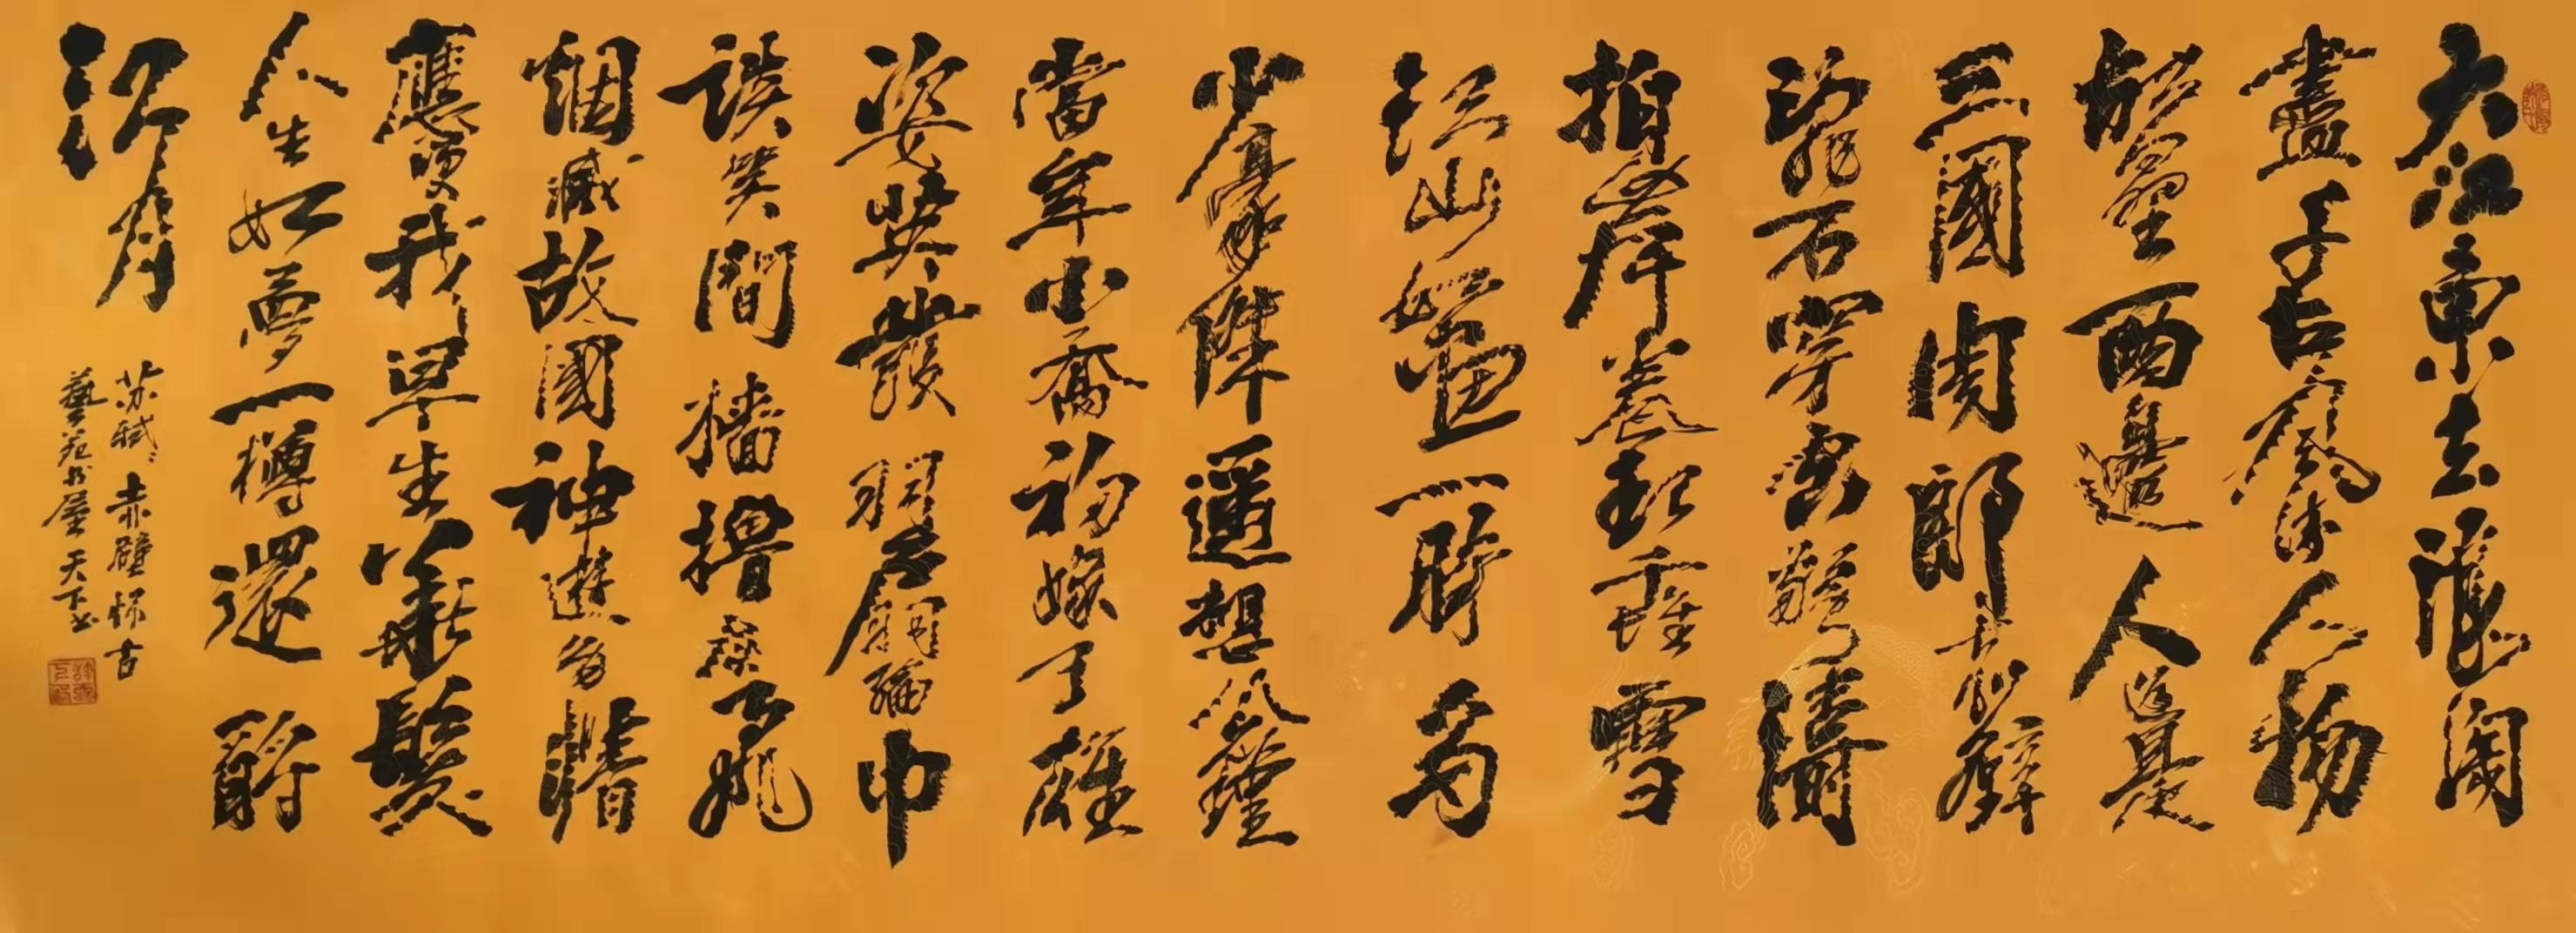 大江東去浪淘
盡千古風流人物
故壘西邊人道是
三國周郎赤壁
亂石穿空驚濤
拍岸卷起千堆雪
江山如畫一時多
少豪傑遙想公瑾
當年小喬初嫁了雄
姿英發羽扇綸巾
談笑間檣櫓灰飛
烟滅故國神遊多情
應笑我早生華髮
人生如夢一樽還酹
江月
苏轼赤壁怀古
藝苑书屋天下书